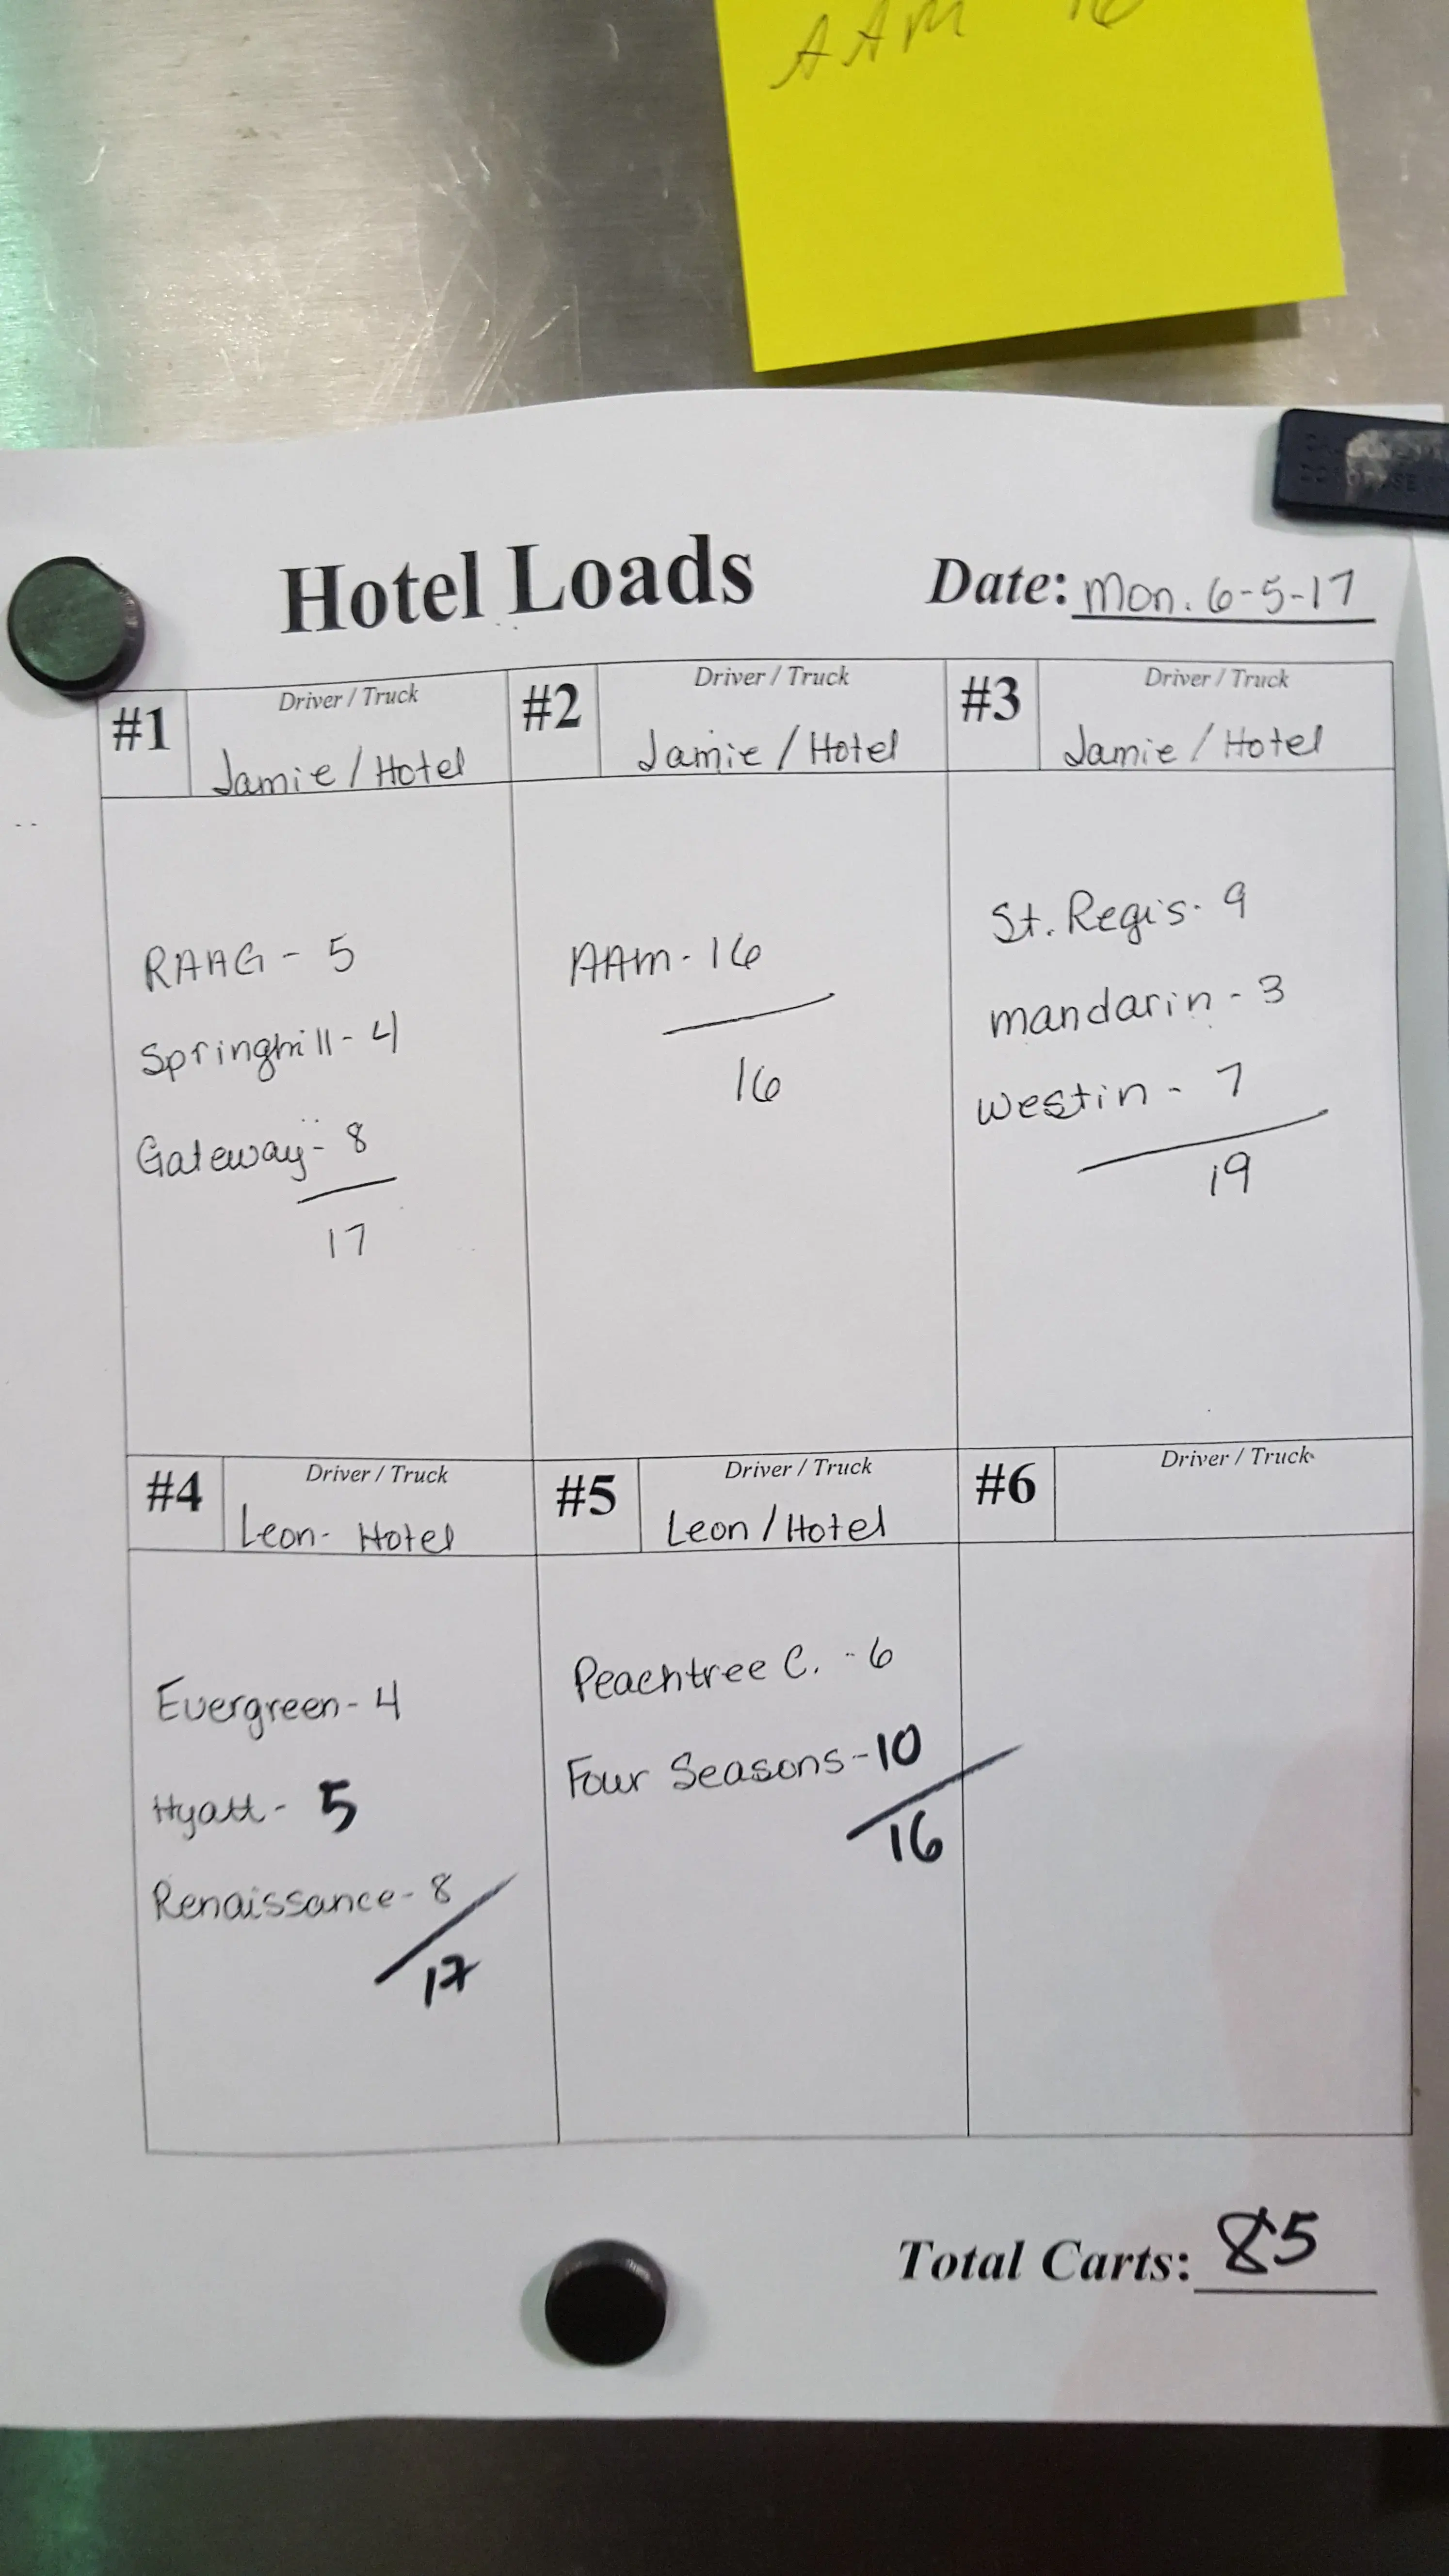 AAM 16
Hotel Loads Date: Mon. 6-5-17
#1 Driver / Truck
Jamie / Hotel
RAAG - 5
Springhill - 4
Gateway - 8
17
#2 Driver / Truck
Jamie / Hotel
AAM - 16
16
#3 Driver / Truck
Jamie / Hotel
St. Regis - 9
mandarin - 3
Westin - 7
19
#4 Driver / Truck
Leon - Hotel
Evergreen - 4
Hyatt - 5
Renaissance - 8
17
#5 Driver / Truck
Leon / Hotel
Peachtree C. - 6
Four Seasons - 10
16
#6 Driver / Truck
Total Carts: 85